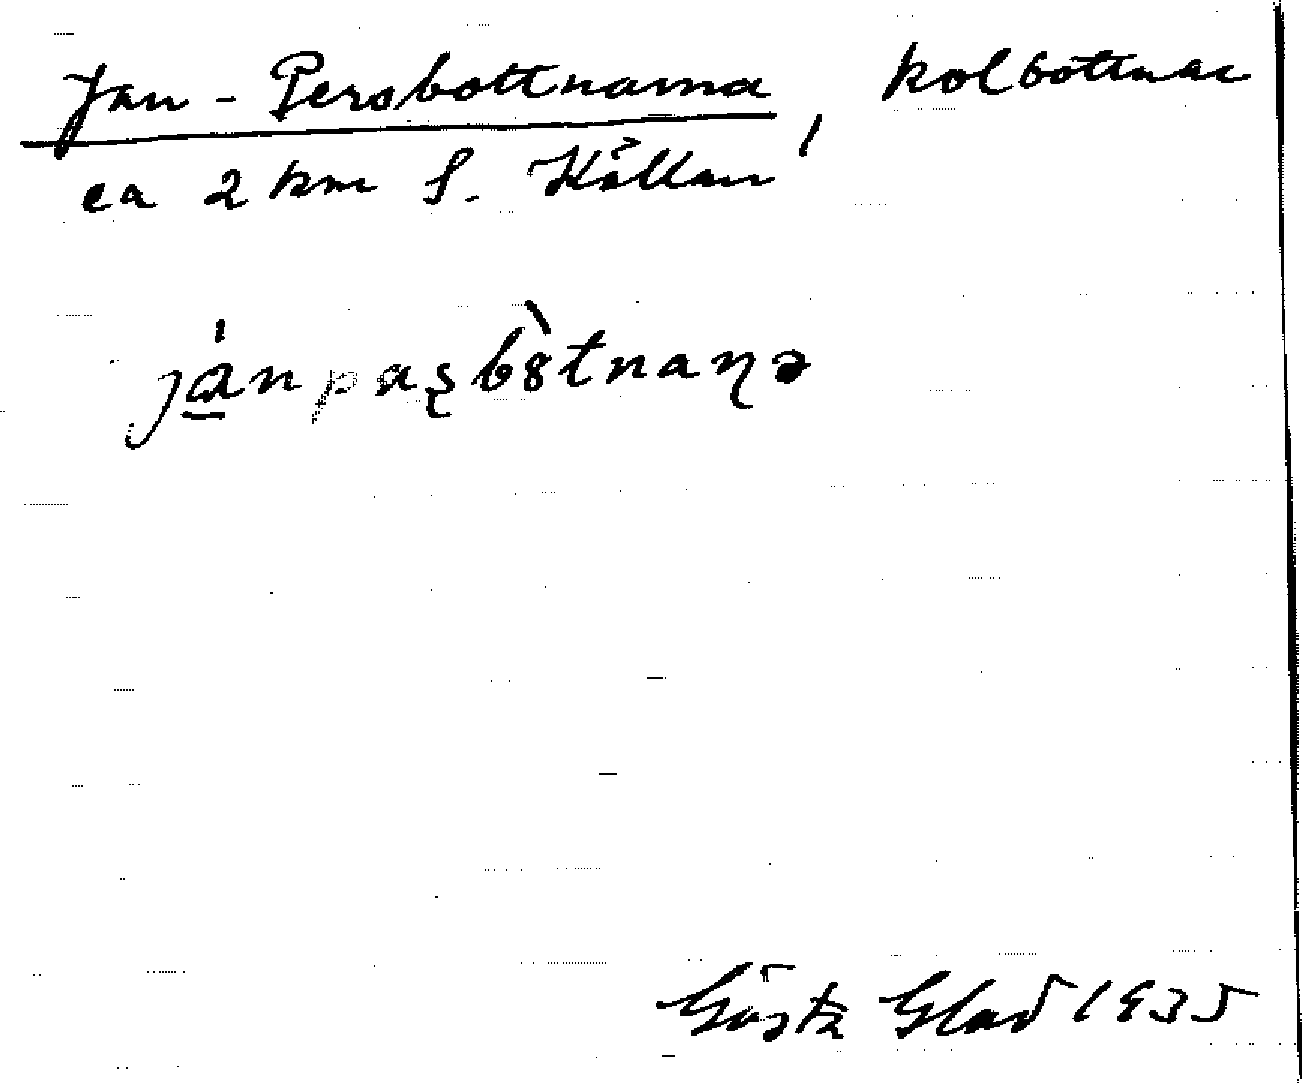 Jan-Persbottnarna, kolbottnar
ca 2 km S. Källan
Gösta Glad 1935